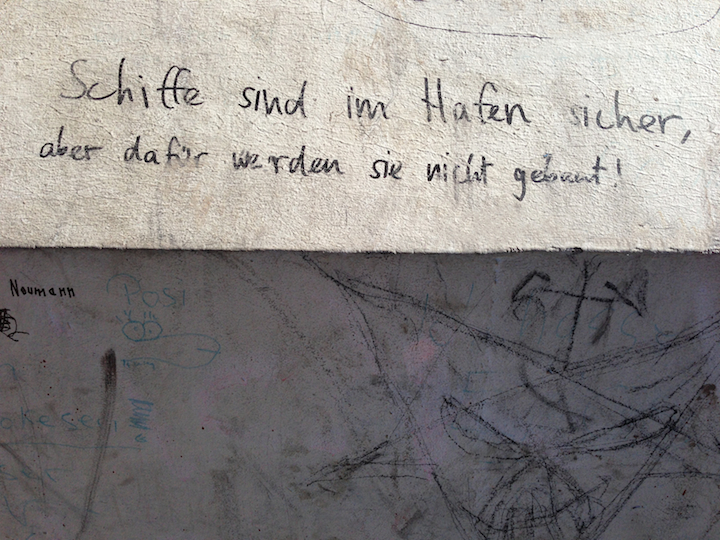 Schiffe sind im Hafen sicher,
aber dafür werden sie nicht gebaut!
Neumann
Pasi